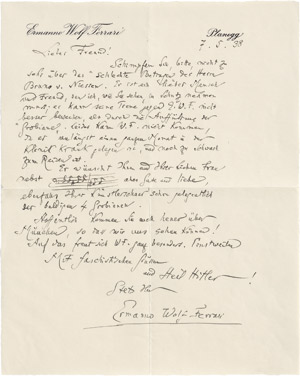 Ermanno Wolf-Ferrari Planegg
7. 5. 38
Lieber Freund!
Schimpfen Sie, bitte, nicht zu
sehr über das schlechte Betragen des Herrn
Bruno v. Niessen. Er ist ein Mensch
und Freund, den ich, wie Sie sehen, in Schutz nehmen
muss; er kann seine Treue gegen E.W.F. nicht
besser beweisen als durch die Aufführung der
Grobiane. Leider kann W.F. nicht kommen,
da er unlängst einen ganzen Monat in der
Klinik krank gelegen ist, und noch zu schwach
zum Reisen ist.
Er wünscht Ihnen und Ihrer lieben Frau
nebst alles Gute und Liebe
ebenfalls Ihrer Künstlerschar gelegentlich
der baldigen 4 Grobiane.
Hoffentlich kommen Sie noch heuer über
München, so dass wir uns sehen können!
Auf das freut sich Wf. ganz besonders. Einstweilen
Mit faschistischem Gruss
und Heil Hitler!
Stets Ihr
Ermanno Wolf-Ferrari